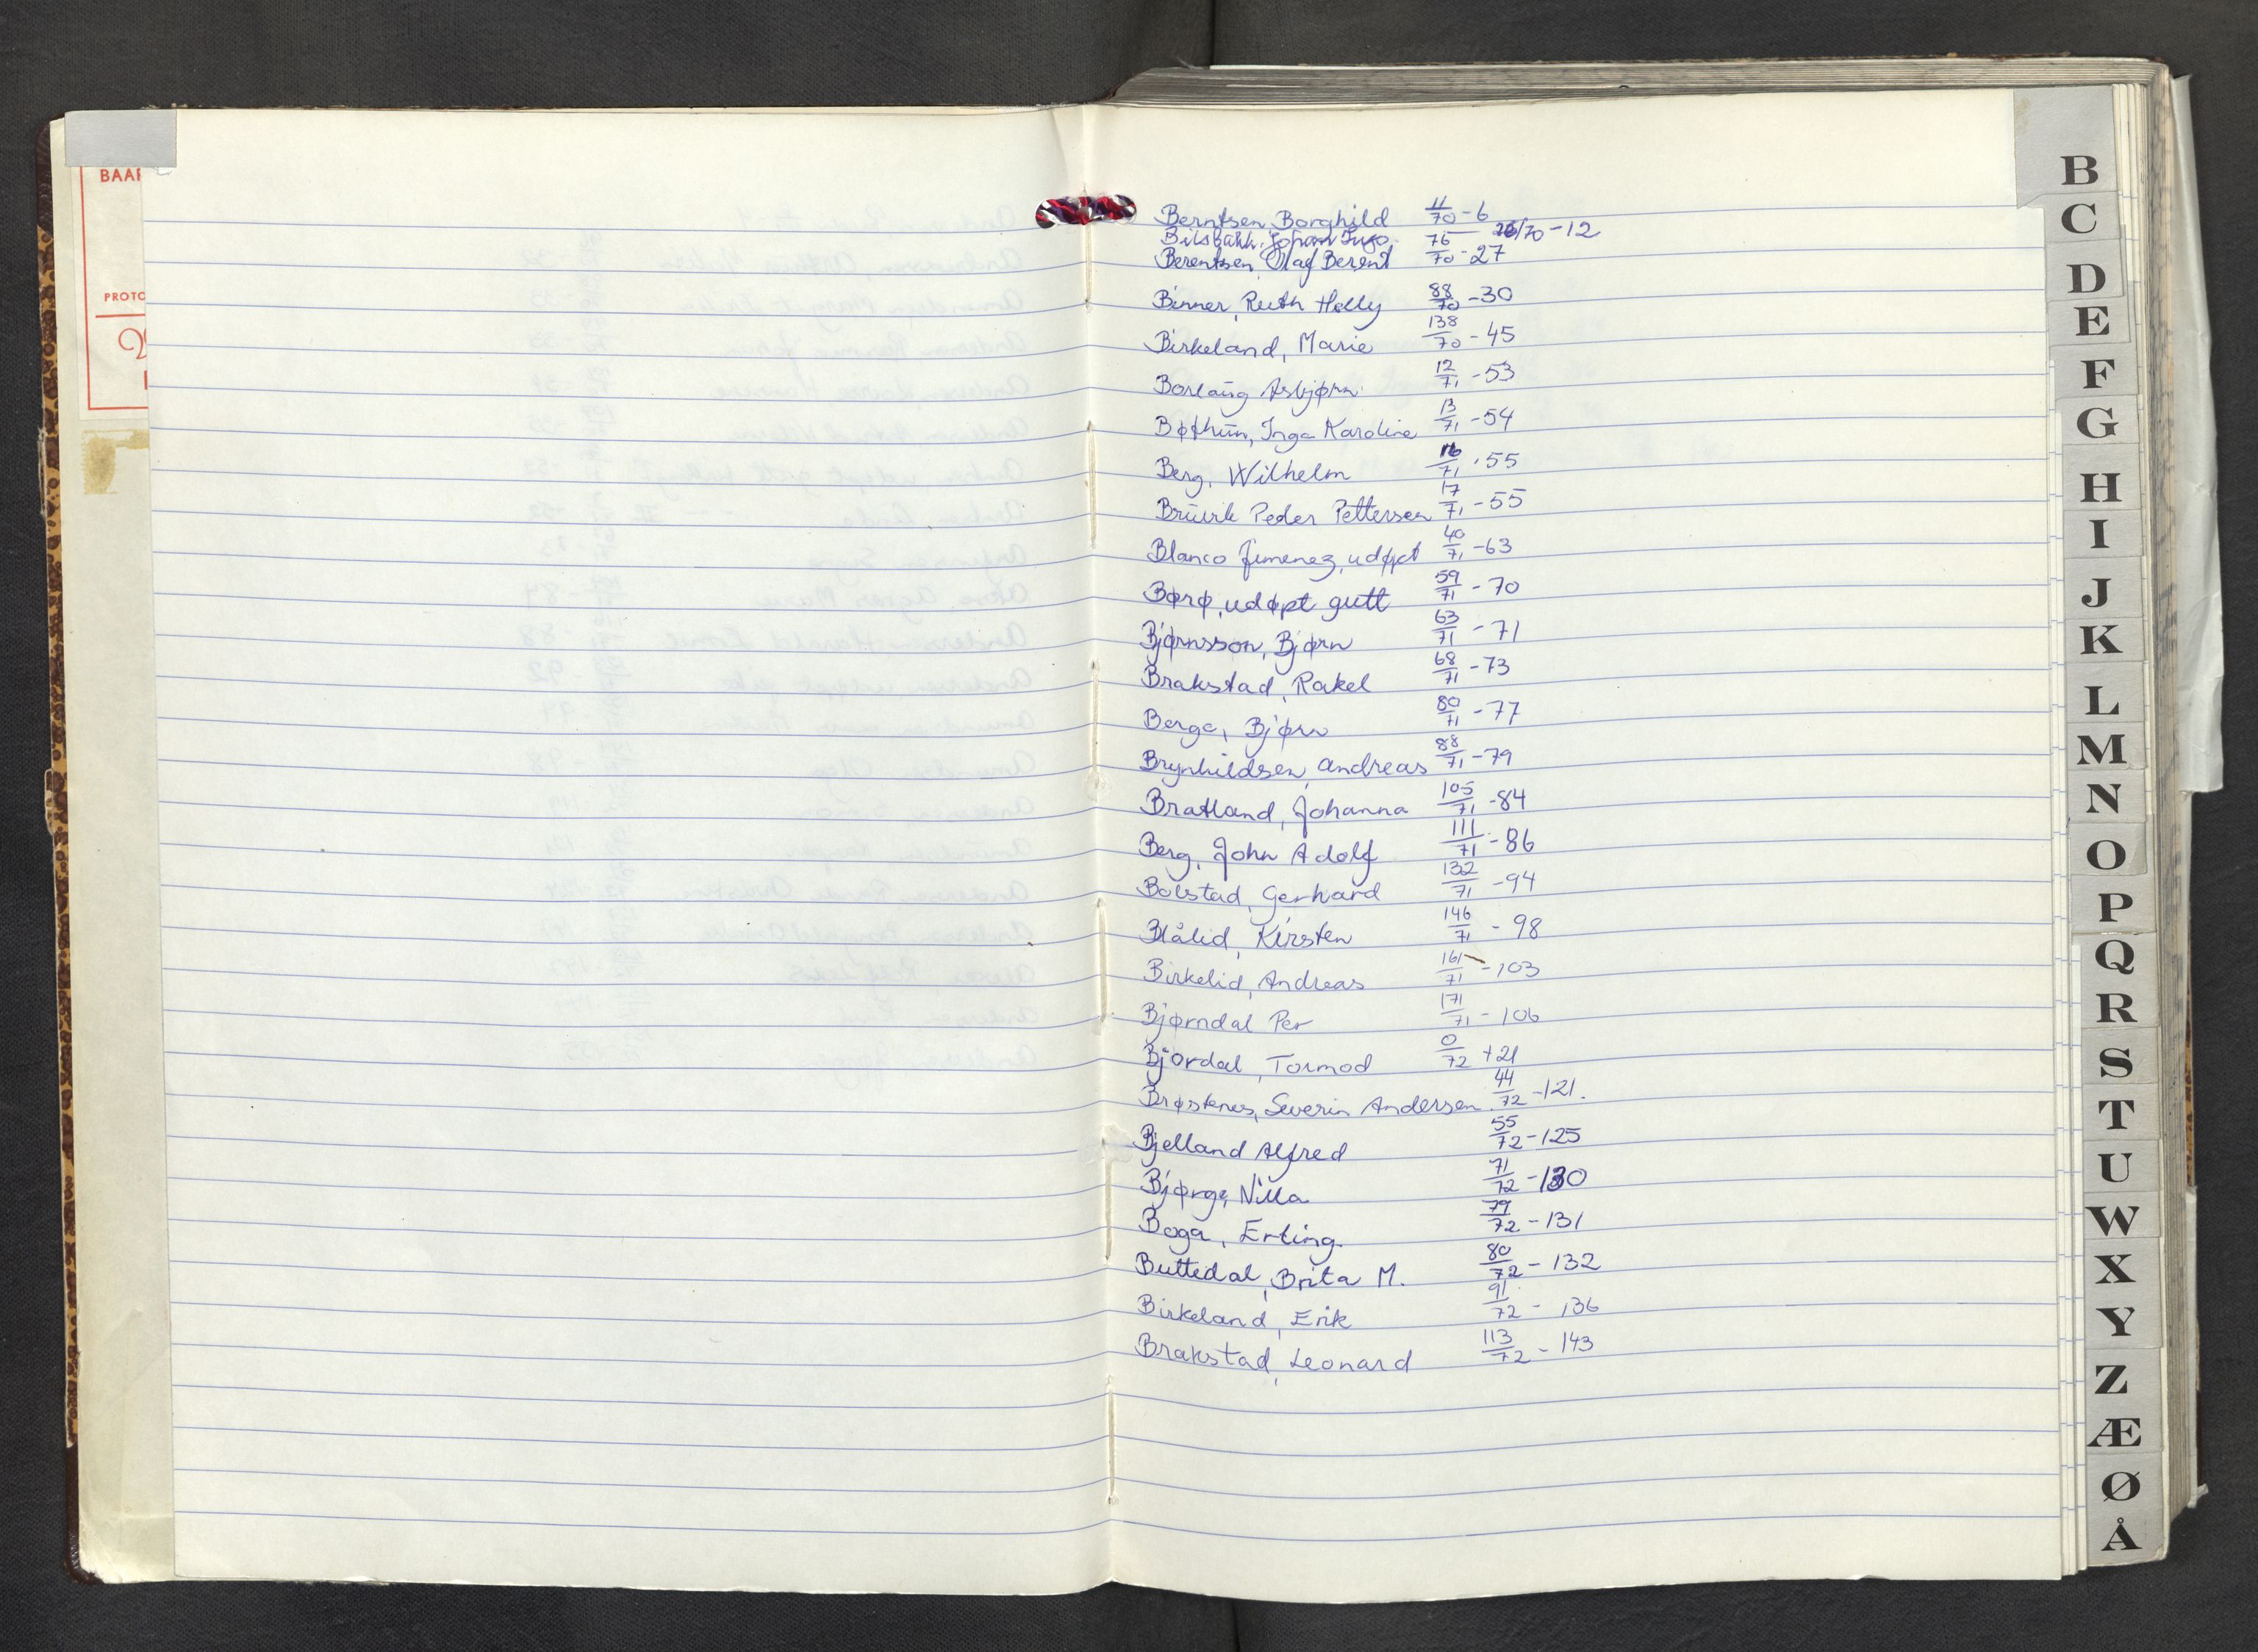 BAAR
PROTO
Berntsen, Borghild 11/70 - 6
Johan 76/70 26/70 - 12
Berentsen, Olaf Berent 70 - 27
Binner, Ruth Helly 88/70 - 30
Birkeland, Marie 138/70 - 45
Borlaug Asbjørn 12/71 - 53
Bøthun, Inga Karoline 13/71 - 54
Berg, Wilhelm 16/71 - 55
Bruvik Peder Pettersen 17/71 - 55
Blanco Jimenez, udøpt 40/71 - 63
Børø, udøpt gutt 59/71 - 70
Bjørnsson, Bjørn 63/71 - 71
Brakstad, Rakel 68/71 - 73
Berge, Bjørn 80/71 - 77
Brynhildsen, Andreas 88/71 - 79
Bratland, Johanna 105/71 - 84
Berg, John Adolf 111/71 - 86
Bolstad, Gerhard 132/71 - 94
Blålid, Kirsten 146/71 - 98
Birkelid, Andreas 161/71 - 103
Bjørndal Per 171/71 - 106
Bjordal, Tormod 0/72 + 21
Brøstenes, Severin Andersen. 44/72 - 121.
Bjelland Alfred 55/72 - 125
Bjørge, Nilla 71/72 - 130
Boga, Erling. 79/72 - 131
Buttedal, Brita M. 80/72 - 132
Birkeland, Erik 91/72 - 136
Brakstad, Leonard 113/72 - 143
B
C
D
E
F
G
H
I
J
K
L
M
N
O
P
Q
R
S
T
U
W
X
Y
Z
Æ
Ø
Å